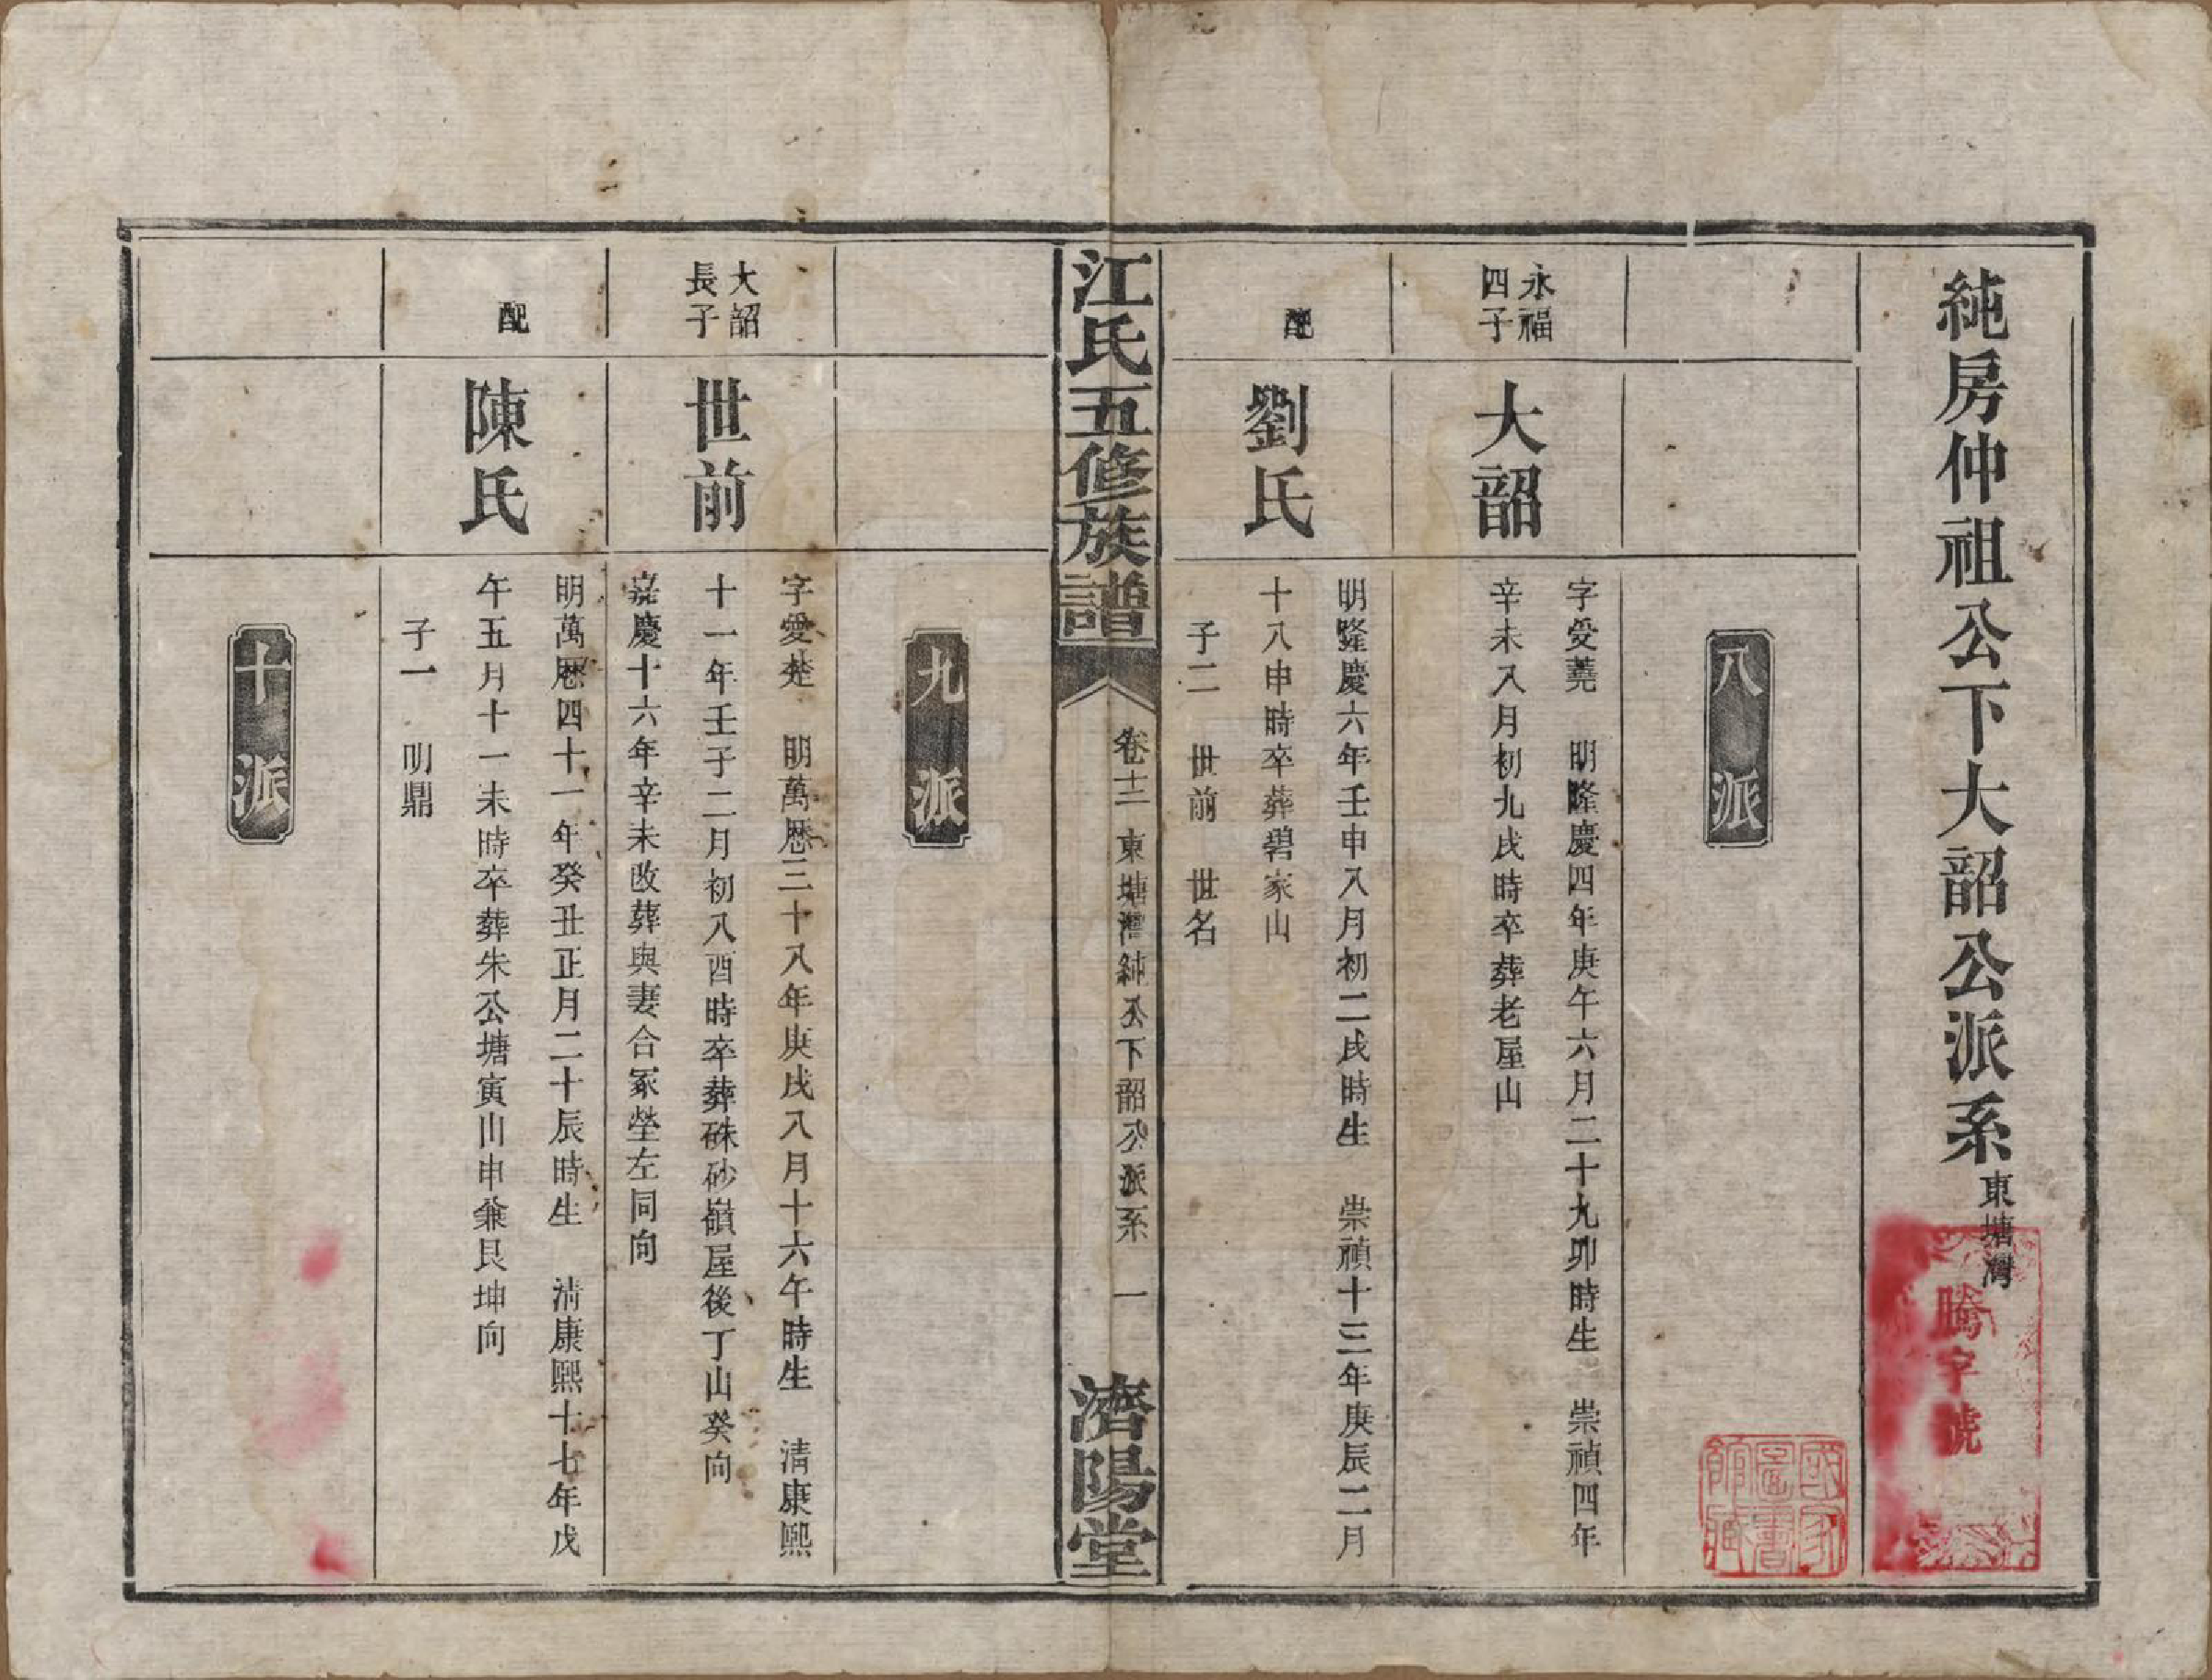 純房仲祖公下大韶公派系東塘灣
騰字號
國家圖書館藏
八派
永福
四子
大韶
字受蕘　明隆慶四年庚午六月二十九卯時生　崇禎四年
辛未八月初九戌時卒葬老屋山
配
劉氏
明隆慶六年壬申八月初二戌時生　崇禎十三年庚辰二月
十八申時卒葬碧家山
子二　世前　世名
江氏五修族譜
卷十二　東塘灣純公下韶公派系　一
濟陽堂
九派
大韶
長子
世前
字愛楚　明萬歷三十八年庚戌八月十六午時生　清康熙
十一年壬子二月初八酉時卒葬硃砂嶺屋後丁山癸向
嘉慶十六年辛未改葬與妻合冢塋左同向
配
陳氏
明萬歷四十一年癸丑正月二十辰時生　清康熙十七年戊
午五月十一未時卒葬朱公塘寅山申兼艮坤向
子一　明鼎
十派